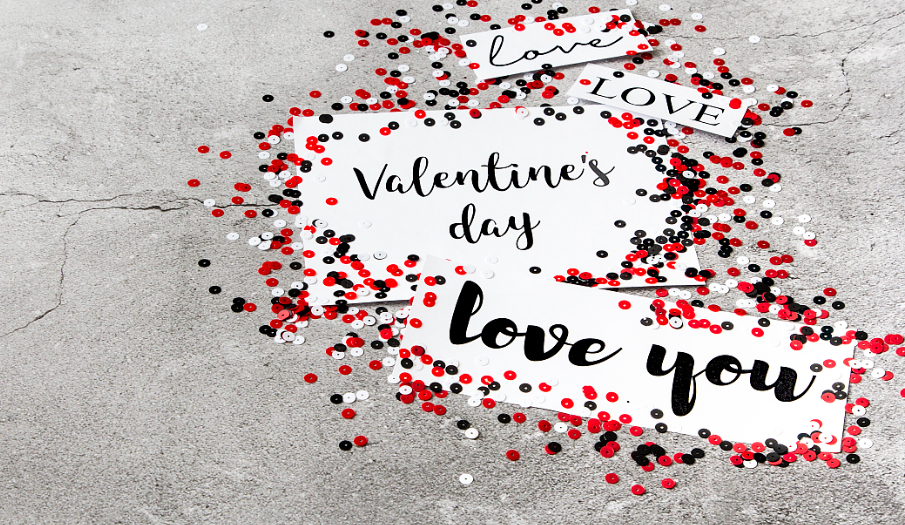 love
LOVE
Valentine's
day
love you